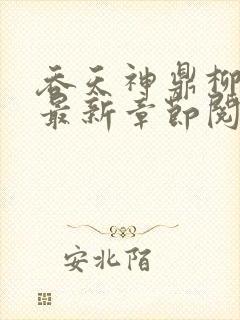 吞天神鼎柳
最新章节阅
安北陌